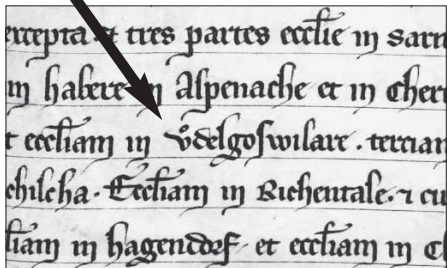 excepta et tres partes ecclie in sarn
in habere in Alpenache et in cher
t eccliam in vͦdelgoswilare . tercian
chilcha . Eccliam in Richentale . ⁊ cu
liam in hagendorf et eccliam in C